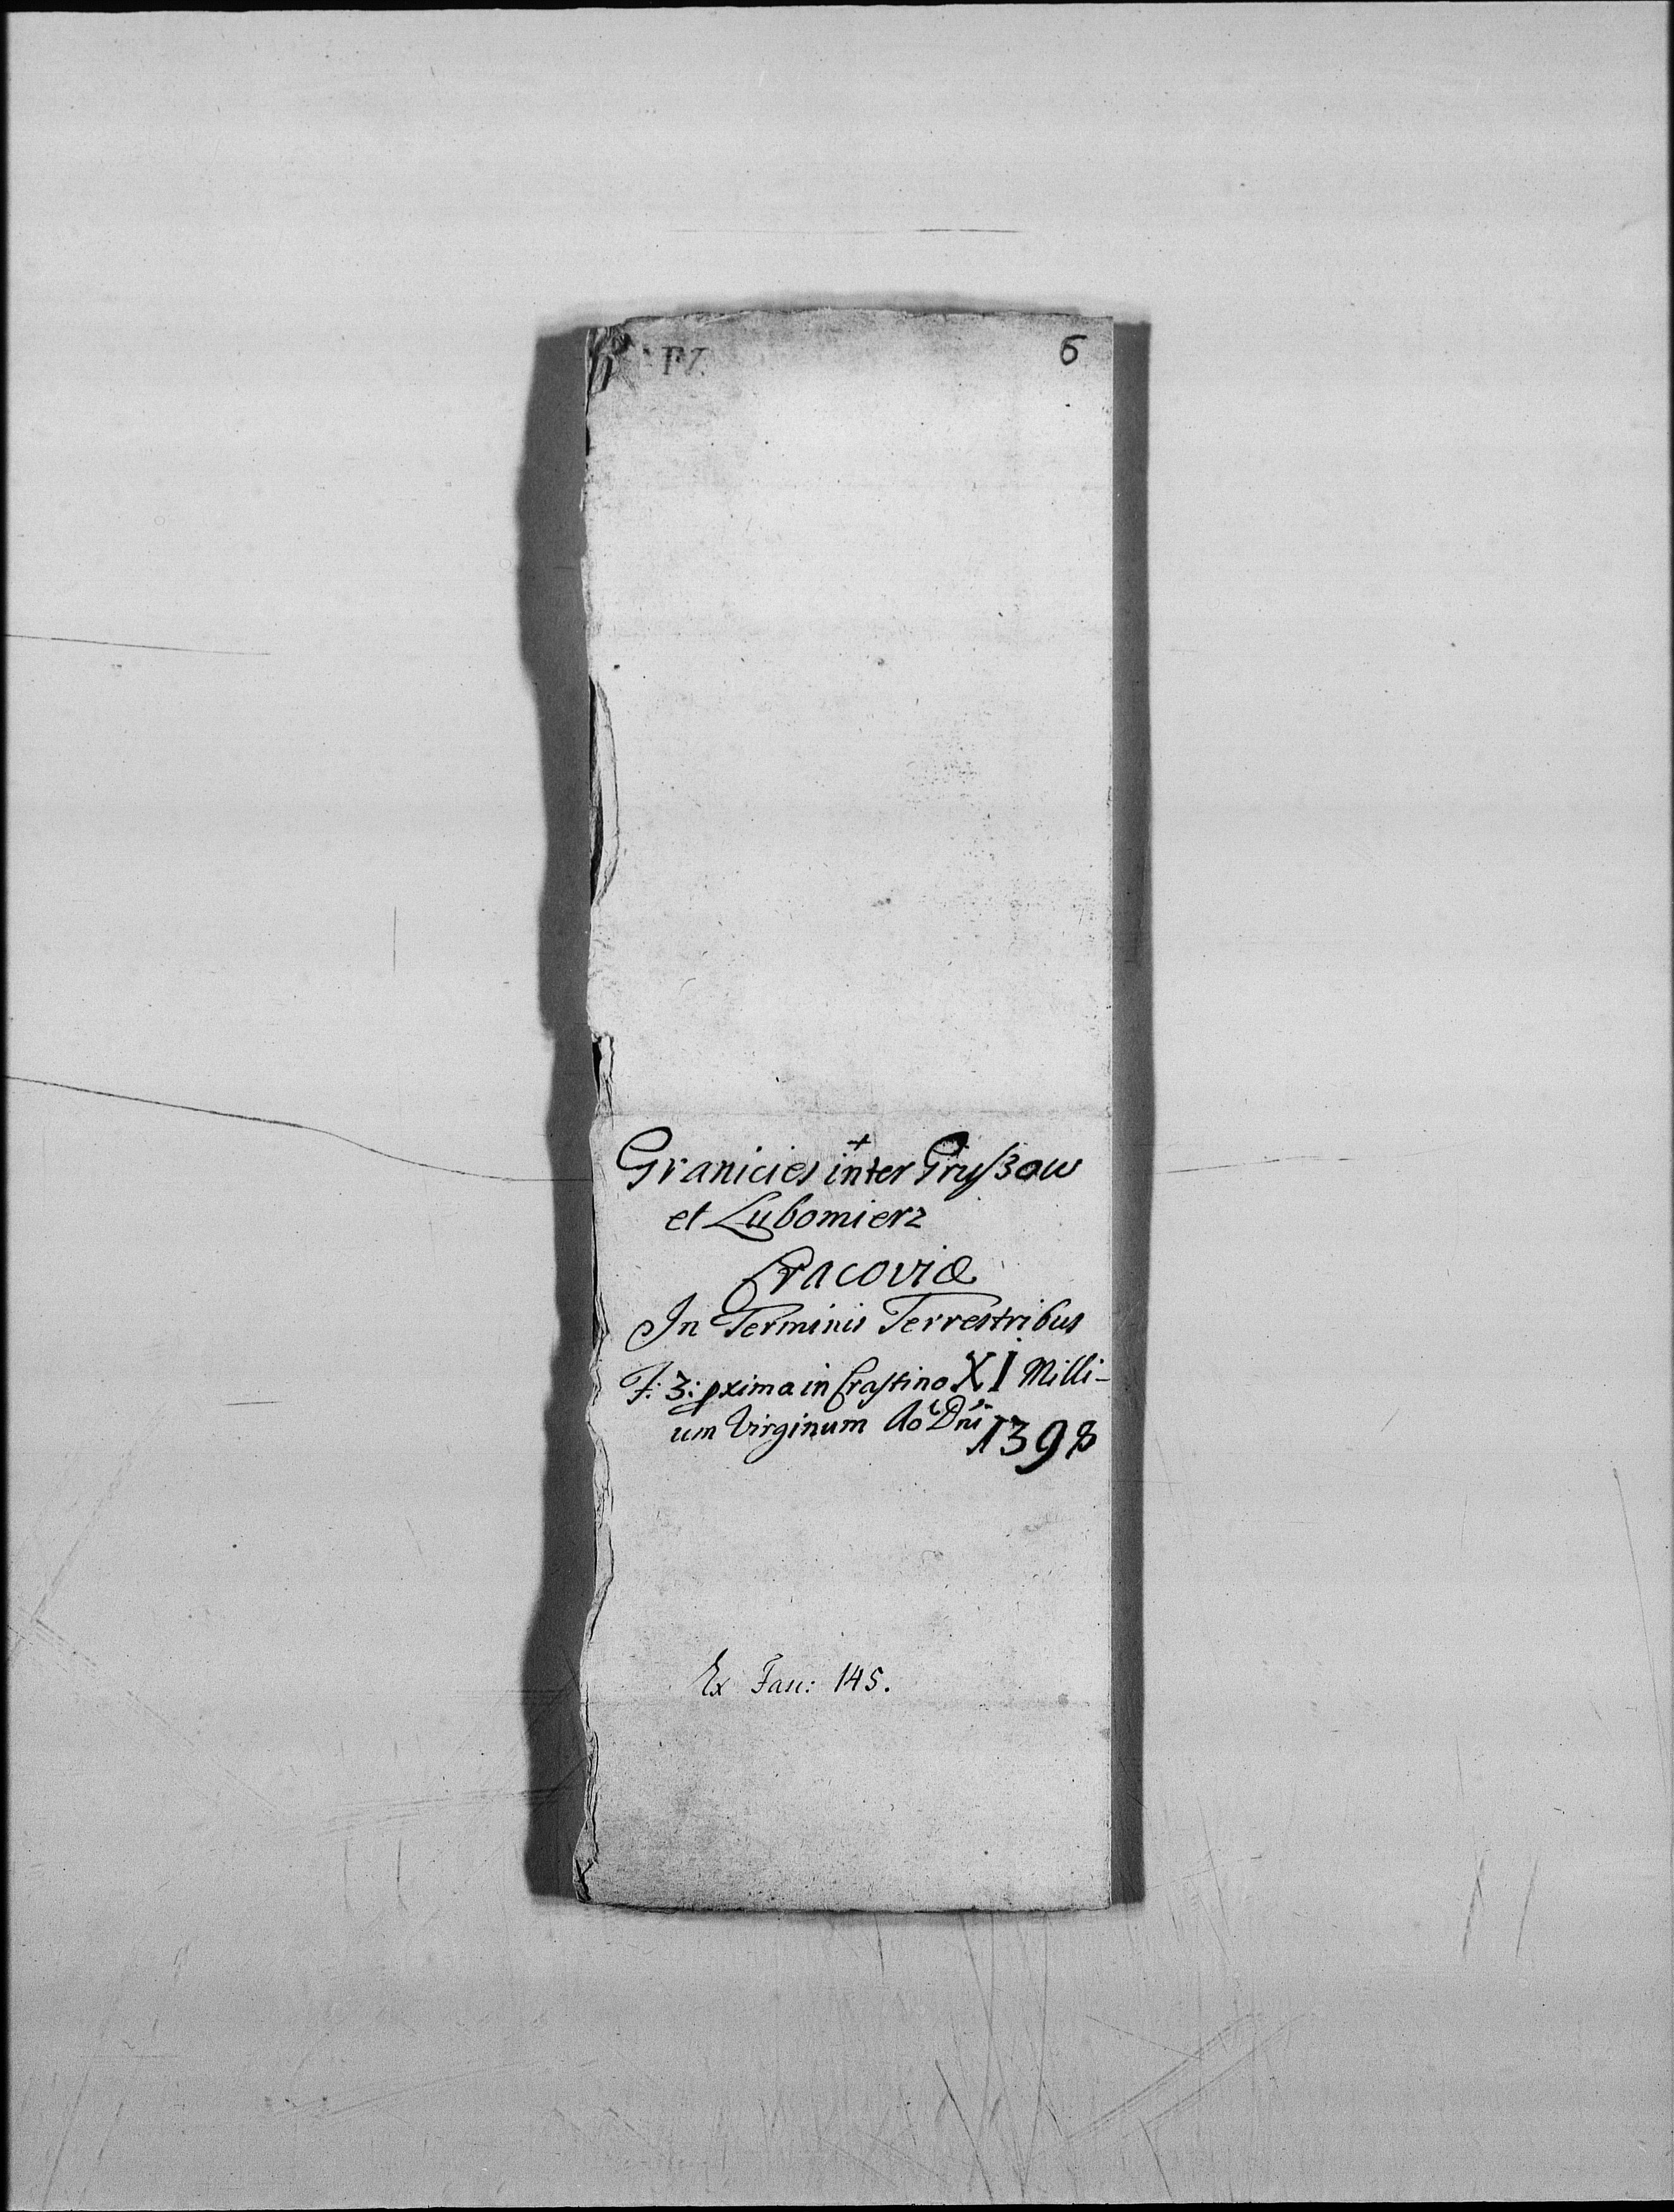 6
Granicies inter Gruſzow
et Lubomierz
Cracoviæ
In Terminis Terrestribus
F: 3: pxima in Craſtino XI Milli-
um Virginum Ao Dni 1398
Ex Fasc: 145.